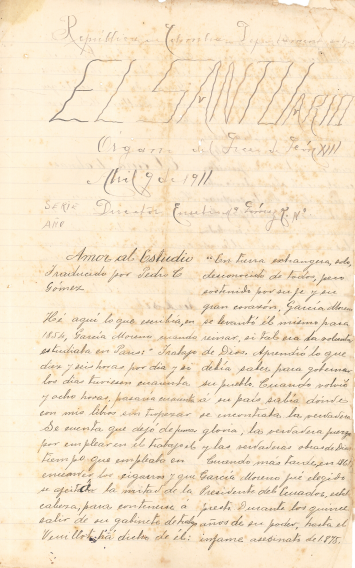 República de Colombia
EL SANTUARIO
Organo del Liceo de León XIII
Abril 9 de 1911
SERIE
AÑO
Director
Amor al Estudio
Traducido por Pedro C
Gómez.
Hé aquí lo que escribía, en
1854, García Moreno, cuando
estudiaba en París: "Trabajo
diez y seis horas por día y si
los días tuviesen cuarenta
y ocho horas, pasaría cuarenta
con mis libros sin tropezar
Se cuenta que dejó de fumar
por emplear en el trabajo el
tiempo que empleaba en
encender los cigarros y que
se afeitó la mitad de la
cabeza, para contenerse a
salir de su gabinete de trabajo
Veuillot há dicho de él:
"En tierra extrangera, solo,
desconocido de todos, pero
sostenido por su fe y su
gran corazón, García Moreno
se levantó él mismo para
reinar, si tal era la voluntad
de Dios. Aprendió lo que
debía saber para gobernar
su pueblo. Cuando volvió
a su país sabía donde
se encontraba la verdadera
gloria, la verdadera fuerza
y las verdaderas obras de Dios
Cuando más tarde, en 1861
García Moreno fué elegido
Presidente del Ecuador,
durante los quince
años de su poder, hasta el
infame asesinato de 1875.